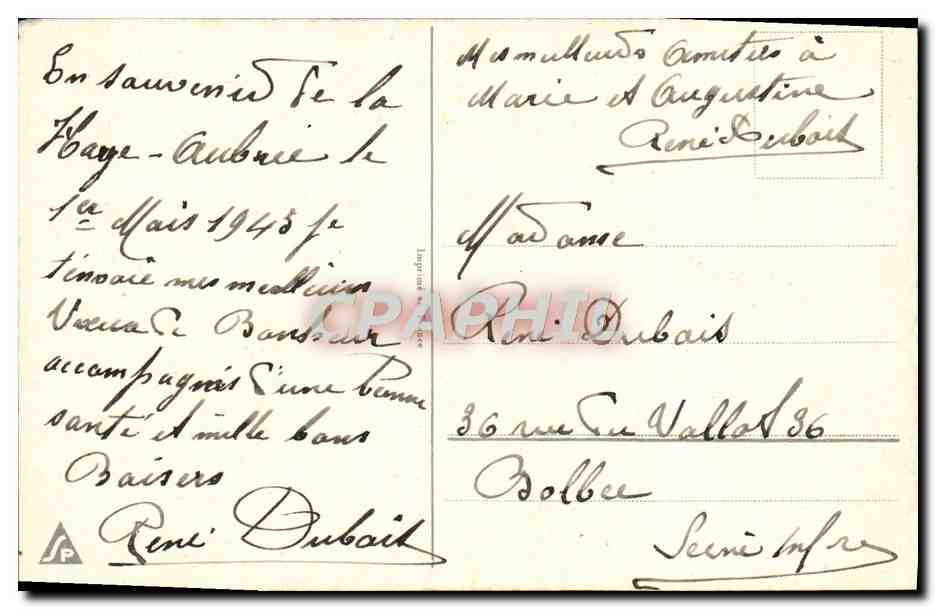 En souvenir de la
Haye-Aubrée le
1er Mais 1943 je
t'envoie mes meilleurs
Voeux de Bonheur
accompagnés d'une bonne
santé et mille bons
Baisers
René Dubait
SP
Imprimé
CPAPHIL
Mes meilleurs amitiés à
Marie et Augustine
René Dubait
Madame
René Dubait
36 rue du Vallot 36
Bolbec
Seine Infre